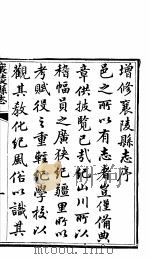 增修襄陵縣志序
邑之所以有志者豈徒備典
章供披覽已哉紀山川所以
稽幅員之廣狹紀疆里所以
考賦役之重輕紀學校以
觀其教化紀風俗以識其